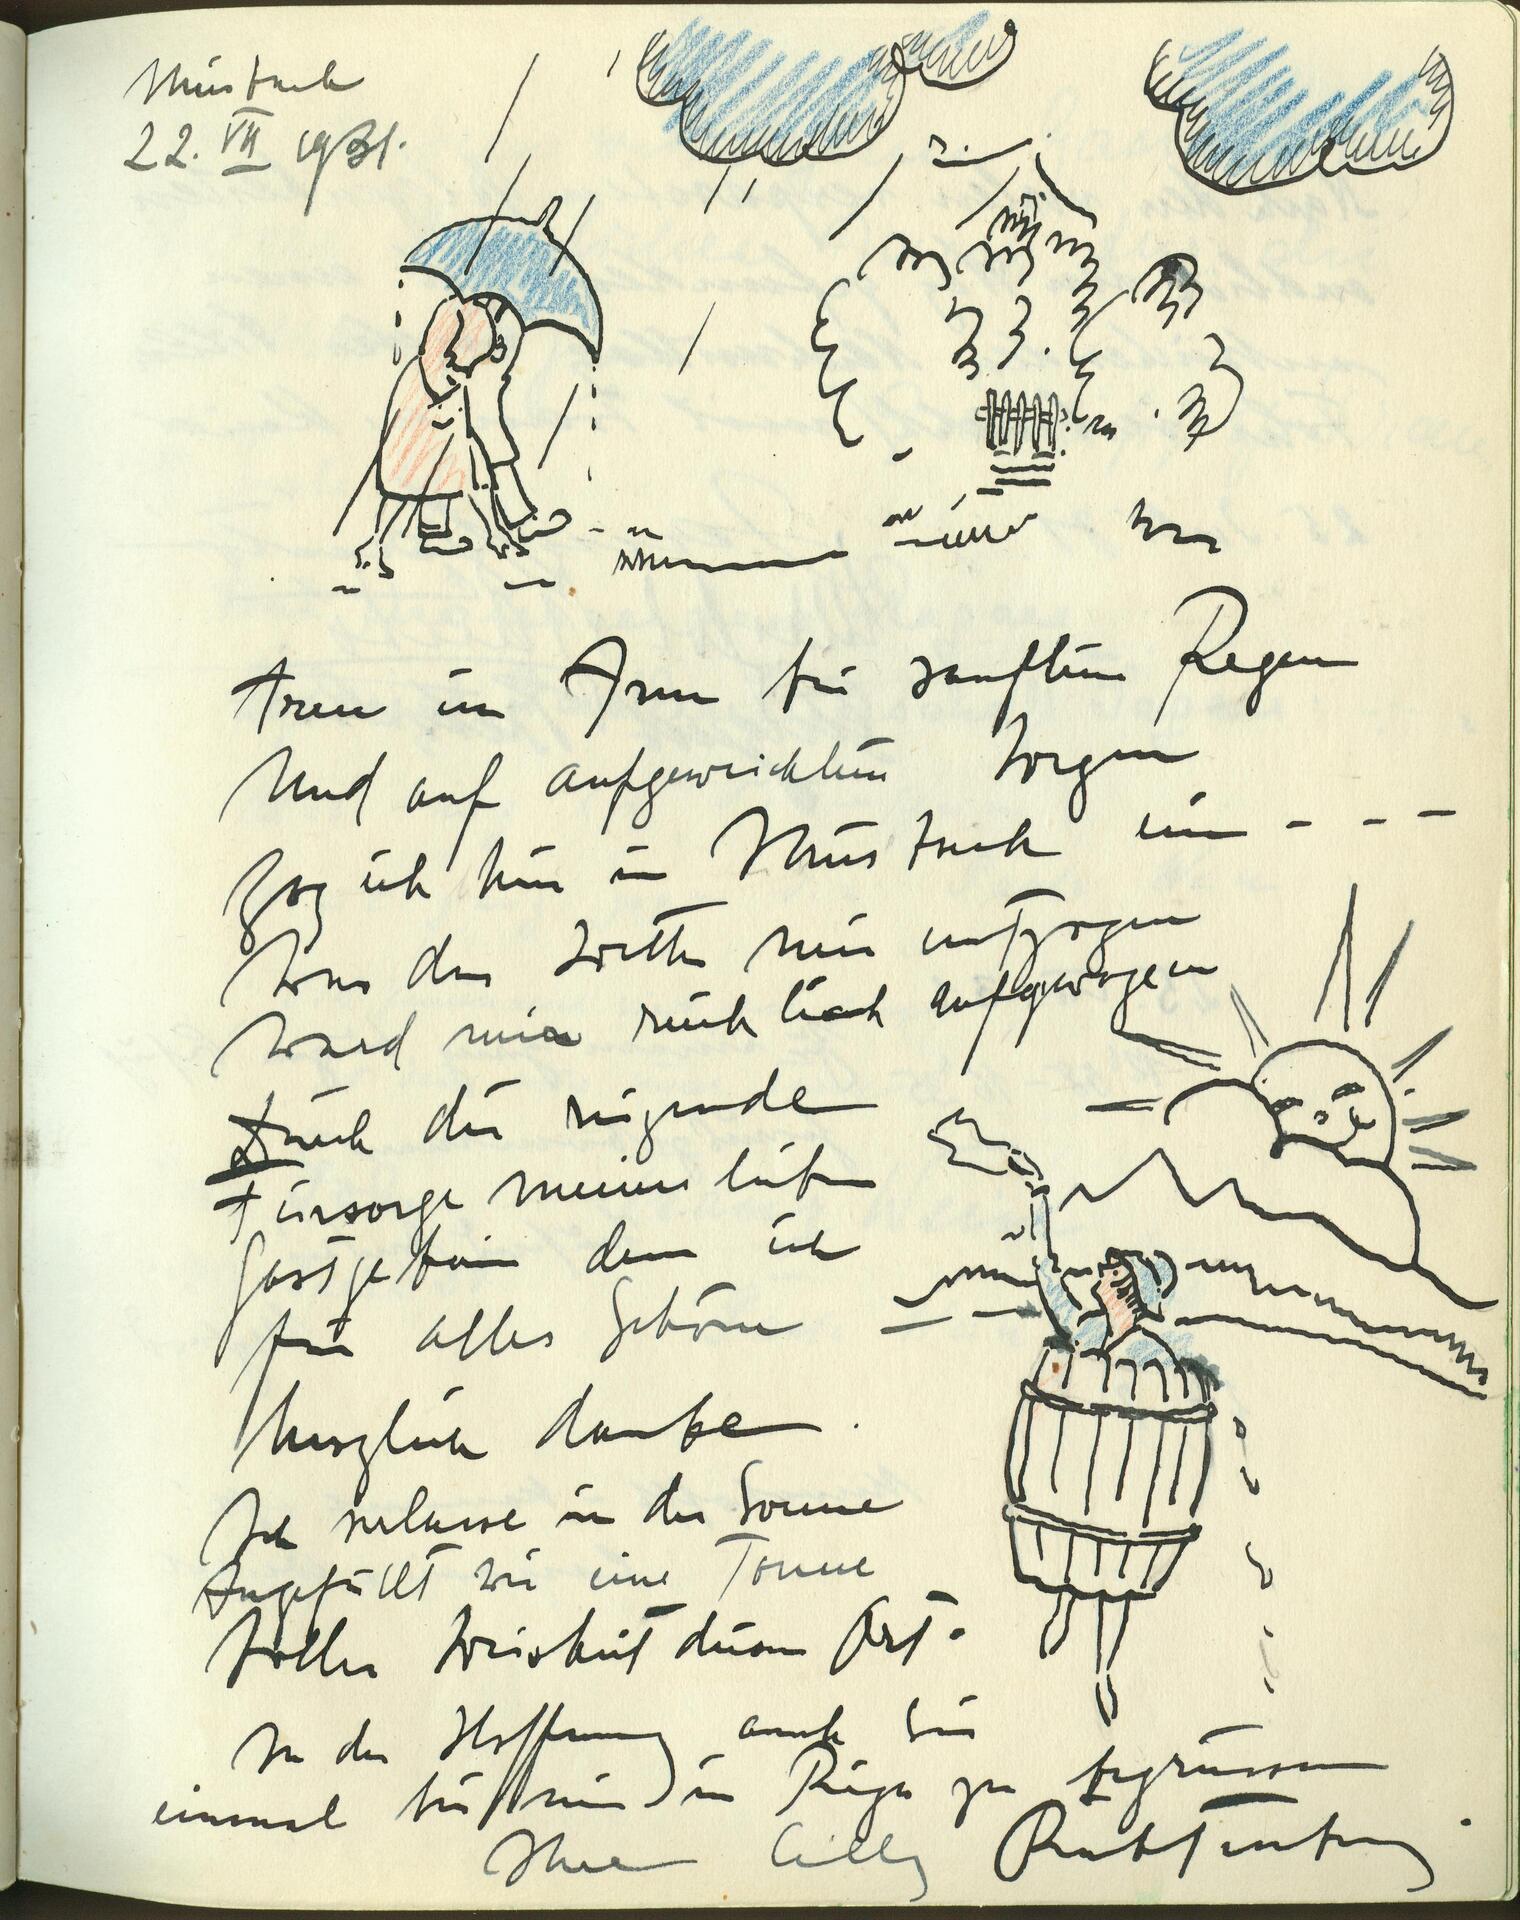 22. VII 1931.
Arm in Arm bei sanftem Regen
Und auf aufgeweichten Wegen
Zog ich hier in ein - - -
Was das Wetter mir entzogen
Ward mir reichlich aufgewogen
Durch die rührende
Fürsorge meiner lieben
Gastgeber dem ich
für alles Schöne
herzlich danke.
Ich verlasse in der Sonne
Angefüllt wie eine Tonne
Voller Weisheit diesen Ort.
In der Hoffnung auch Sie
einmal bei mir in Riga zu begrüssen
Ihre